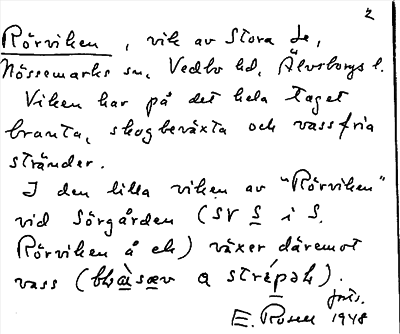 2
Rörviken, vik av Stora Le,
Nössemarks sn, Vedbo hd, Älvsborgs l.
Viken har på det hela taget
branta, skogbeväxta och vassfria
stränder.
I den lilla viken av "Rörviken"
vid Sörgården (SV S i S.
Rörviken å ek) växer däremot
vass
E. Rosell 1948